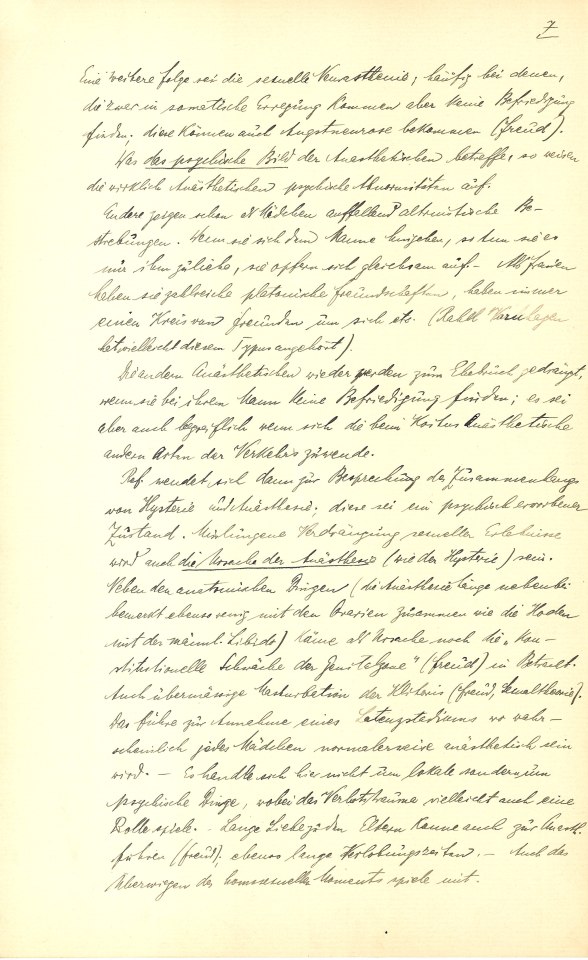 7
Eine weitere Folge sei die sexuelle Neurasthenie; häufig bei denen,
die zwar in somatische Erregung kommen aber keine Befriedigung
finden; diese können auch Angstneurose bekommen (Freud).
Was das psychische Bild der Anästhetischen betreffe, so weisen
die wirklich Anästhetischen psychische Abnormitäten auf.
Endere zeigen schon als Mädchen auffallend altruistische Be-
strebungen. Wenn sie sich dem Manne hingeben, so tun sie es
nur ihm zuliebe, sie opfern sich gleichsam auf. - Als Frauen
haben sie zahlreiche platonische Freundschaften, haben immer
einen Kreis von Freunden um sich etc. (Rahel Varnhagen
hat vielleicht diesem Typus angehört).
Die andern Anästhetischen wieder werden zum Ehebruch gedrängt,
wenn sie bei ihrem Mann keine Befriedigung finden; es sei
aber auch begreiflich wenn sich die beim Koitus Anästhetische
andern Arten des Verkehrs zuwende.
Ref. wendet sich dann zur Besprechung des Zusammenhangs
von Hysterie und Anästhesie; diese sei ein psychisch erworbener
Zustand. Misslungene Verdrängung sexueller Erlebnisse
wird auch die Ursache der Anästhesie (wie der Hysterie) sein.
Neben den anatomischen Dingen (die Anästhesie hänge nebenbei
bemerkt ebensowenig mit den Ovarien zusammen wie die Hoden
mit der männl. Libido) käme als Ursache noch die „kon-
stitutionelle Schwäche der Genitalzone" (Freud) in Betracht.
Auch übermässige Masturbation der Klitoris (Freud, Sexualtheorie).
Das führe zur Annahme eines Latenzstadiums wo wahr-
scheinlich jedes Mädchen normalerweise anästhetisch sein
wird. - Es handle sich hier nicht um lokale sondern um
psychische Dinge, wobei das Verbotstrauma vielleicht auch eine
Rolle spiele. - Lange Liebe zu den Eltern könne auch zur Anästh.
führen (Freud); ebenso lange Verlobungszeiten. - Auch das
Überwiegen des homosexuellen Moments spiele mit.